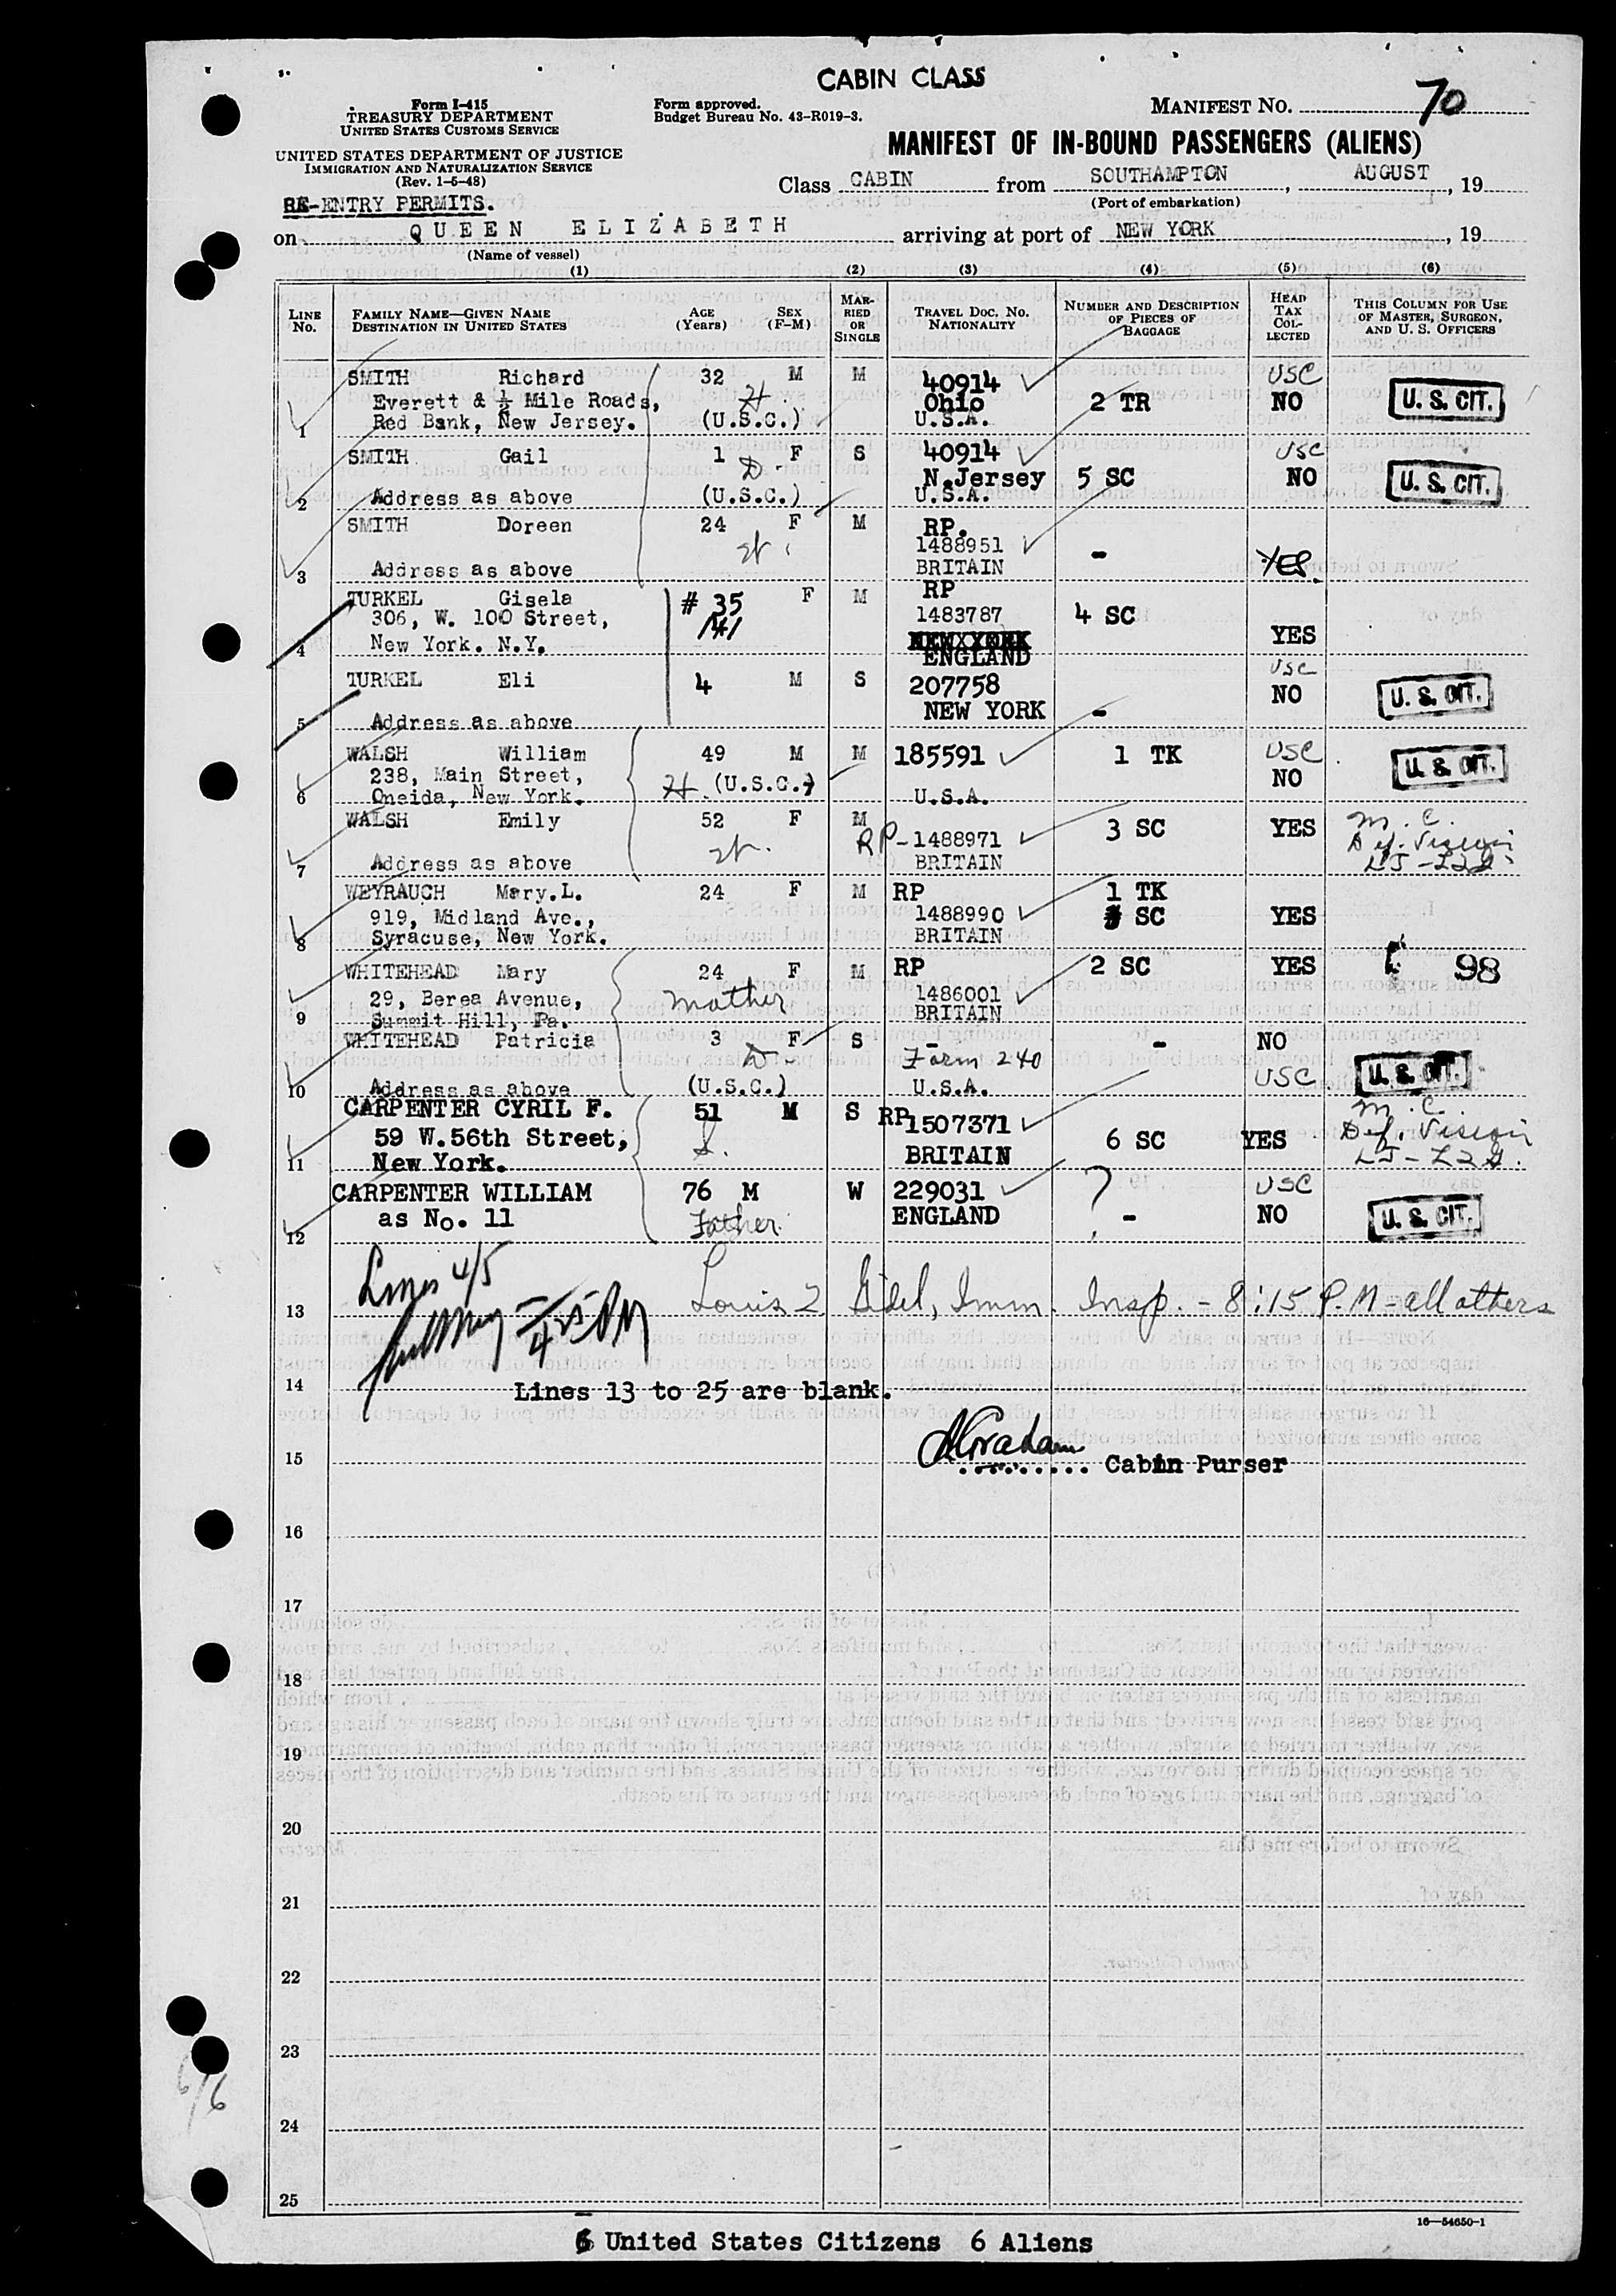 CABIN CLASS
Form I-415
TREASURY DEPARTMENT
UNITED STATES CUSTOMS SERVICE
Form approved.
Budget Bureau No. 43-R019-3.
MANIFEST NO. 70
UNITED STATES DEPARTMENT OF JUSTICE
IMMIGRATION AND NATURALIZATION SERVICE
(Rev. 1-5-48)
MANIFEST OF IN-BOUND PASSENGERS (ALIENS)
Class CABIN from SOUTHAMPTON, AUGUST, 19
(Port of embarkation)
RE-ENTRY PERMITS.
on QUEEN ELIZABETH arriving at port of NEW YORK, 19
(Name of vessel)
(1) (2) (3) (4) (5) (6)
LINE No. FAMILY NAME—GIVEN NAME DESTINATION IN UNITED STATES AGE (Years) SEX (F-M) MARRIED OR SINGLE TRAVEL DOC. NO. NATIONALITY NUMBER AND DESCRIPTION OF PIECES OF BAGGAGE HEAD TAX COLLECTED THIS COLUMN FOR USE OF MASTER, SURGEON, AND U. S. OFFICERS
SMITH Richard 32 M M 40914 USC
Everett & ½ Mile Roads, H Ohio 2 TR NO U. S. CIT.
1 Red Bank, New Jersey. (U.S.C.) U.S.A.
SMITH Gail 1 F S 40914 USC
D- N.Jersey 5 SC NO U. S. CIT.
2 Address as above (U.S.C.) U.S.A.
SMITH Doreen 24 F M RP.
1488951 -
3 Address as above BRITAIN YES
TURKEL Gisela # 35 F M RP
306, W. 100 Street, 1483787 4 SC
4 New York. N.Y. NEW YORK YES
ENGLAND
TURKEL Eli 4 M S 207758 USC
NO U. S. CIT.
5 Address as above NEW YORK -
WALSH William 49 M M 185591 1 TK USC
238, Main Street, H. (U.S.C.) NO U. S. CIT.
6 Oneida, New York. U.S.A.
WALSH Emily 52 F M RP-1488971 3 SC YES M. C.
Def. Vision
7 Address as above BRITAIN
WEYRAUCH Mary.L. 24 F M RP 1 TK
919, Midland Ave., 1488990 SC YES
8 Syracuse, New York. BRITAIN
WHITEHEAD Mary 24 F M RP 2 SC YES 98
29, Berea Avenue, Mother 1486001
9 Summit Hill, Pa. BRITAIN
WHITEHEAD Patricia 3 F S - - NO
D- Form 240
10 Address as above (U.S.C.) U.S.A. USC U. S. CIT.
CARPENTER CYRIL F. 51 M S RP 1507371 M.C.
59 W.56th Street, S. 6 SC YES Def. Vision
11 New York. BRITAIN
CARPENTER WILLIAM 76 M W 229031 ? USC
as No. 11 Father ENGLAND - NO U. S. CIT.
12
Lines 4/5
13 Louis Z Gidel, Imm. Insp. - 8:15 P.M - all others
14 Lines 13 to 25 are blank.
Graham
15 ......... Cabin Purser
16
17
18
19
20
21
22
23
24
25
16—54650-1
6 United States Citizens 6 Aliens
6/6